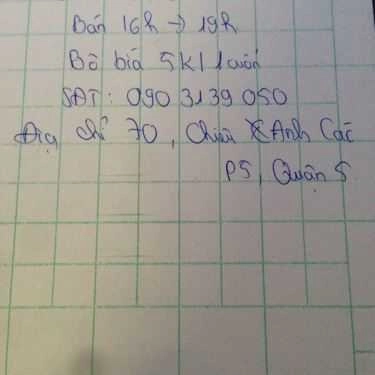 Bán 16h → 19h
Bò bía 5K/1 cuốn
SĐT: 090 3139 050
Địa chỉ 70, Chiêu Anh Các
P5, Quận 5